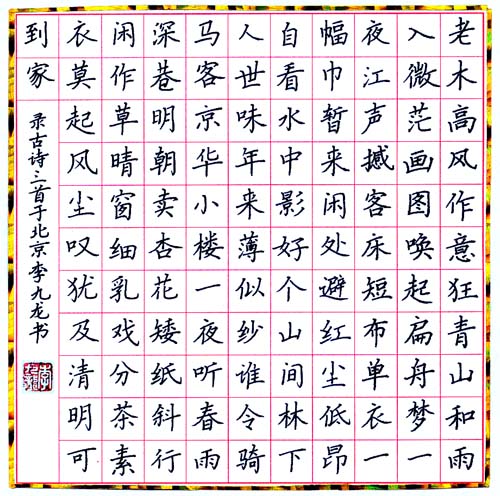 老木高风作意狂青山和雨
入微茫画图唤起扁舟梦一
夜江声撼客床短布单衣一
幅巾暂来闲处避红尘低昂
自看水中影好个山间林下
人世味年来薄似纱谁令骑
马客京华小楼一夜听春雨
深巷明朝卖杏花矮纸斜行
闲作草晴窗细乳戏分茶素
衣莫起风尘叹犹及清明可
到家
录古诗三首于北京李九龙书